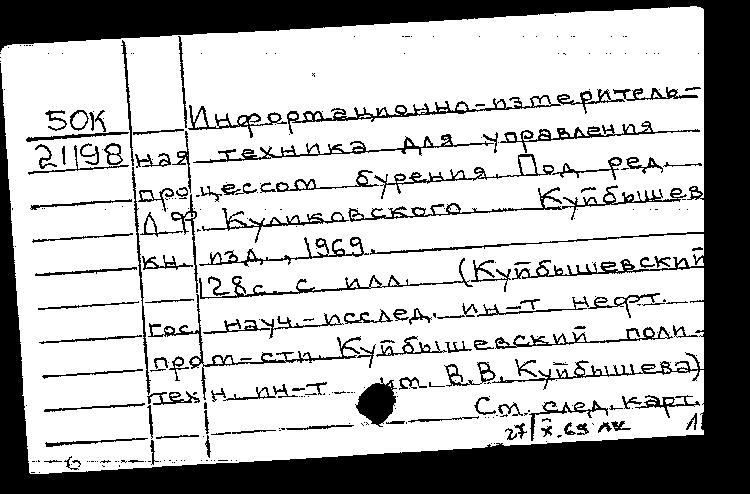 50К
21198
Информационно-измеритель-
ная техника для управления
процессом бурения. Под ред.
Л.Ф. Куликовского. Куйбышев
кн. изд., 1969.
128с. с илл. (Куйбышевский
гос. науч.-исслед. ин-т нефт.
пром-сти. Куйбышевский поли-
техн. ин-т им. В.В. Куйбышева)
См. след. карт.
27/X.69
6